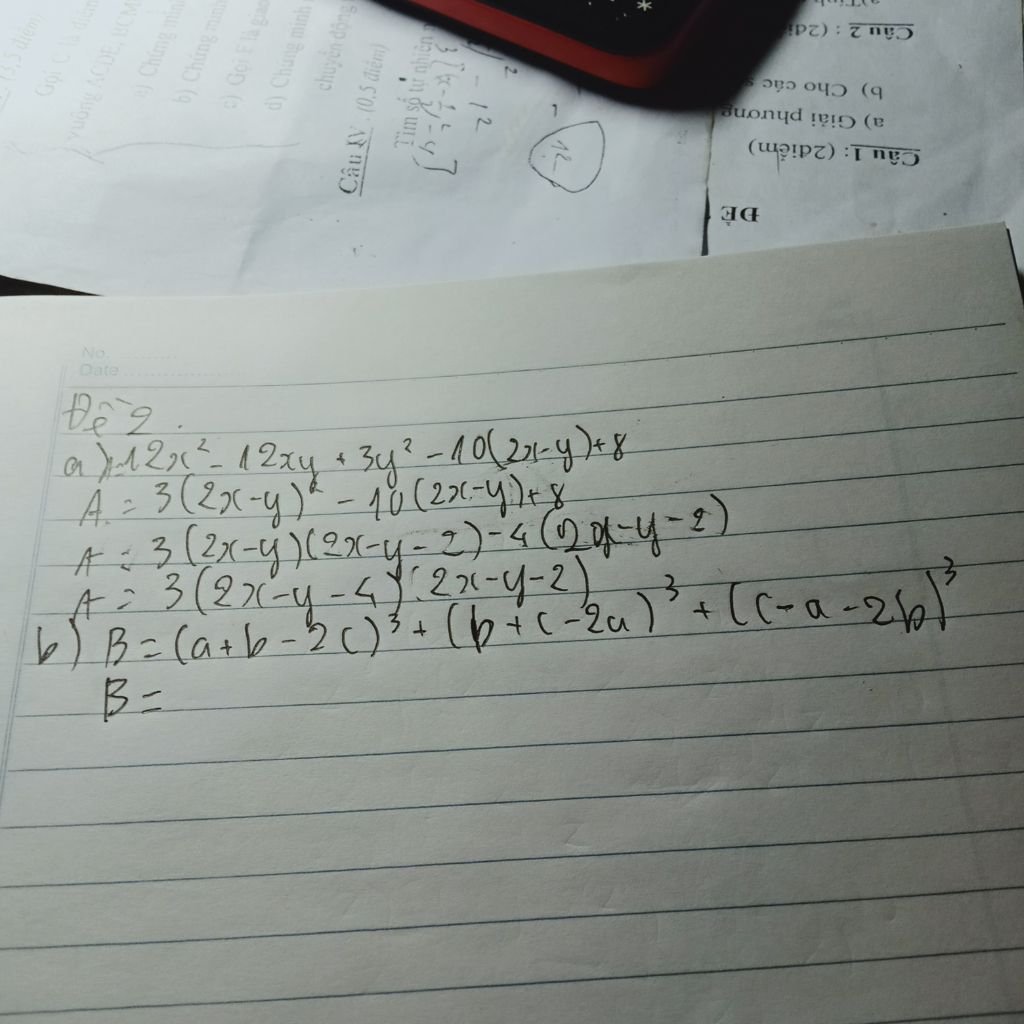 No. ..........
Date ..................
Đề 2.
a) 12x² - 12xy + 3y² - 10(2x-y)+8
A = 3(2x-y)² - 10(2x-y)+8
A = 3(2x-y)(2x-y-2)-4(2x-y-2)
A = 3(2x-y-4)(2x-y-2)
b) B = (a+b-2c)³ + (b+c-2a)³ + (c-a-2b)³
B =
ĐỀ
Câu 1: (2điểm)
a) Giải phương
b) Cho các
Câu 2 : (2đi
Gọi C là điểm
vuông ACDE, BCM
a) Chứng min
b) Chứng minh
c) Gọi F là giao
d) Chứng minh
chuyển động
Câu IV. (0,5 điểm)
Tìm số tự nhiên
12